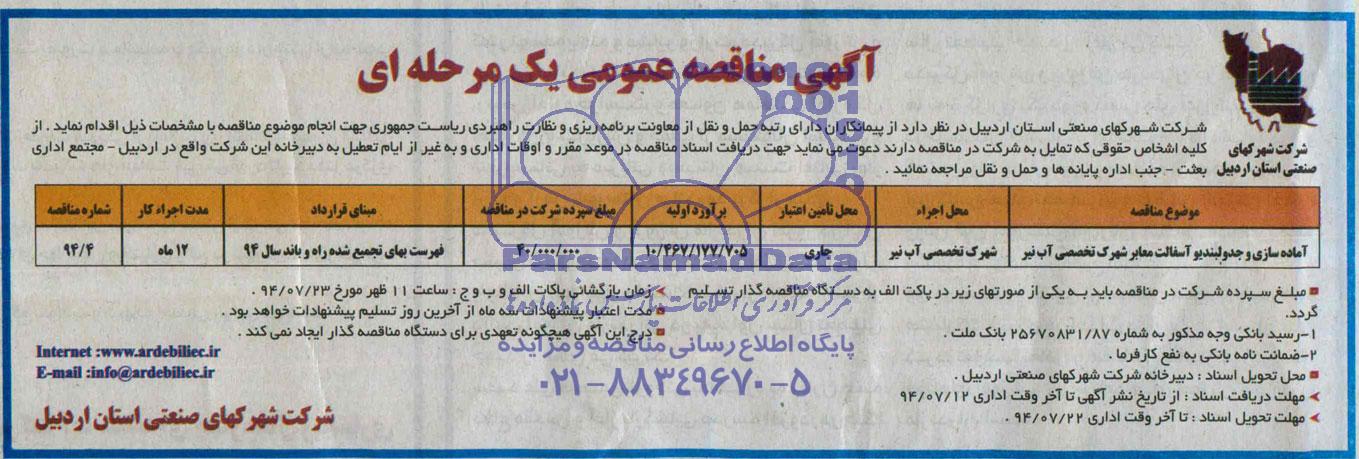 آگهی مناقصه عمومی یک مرحله ای
شرکت شهرکهای
صنعتی استان اردبیل
شرکت شهرکهای صنعتی استان اردبیل در نظر دارد از پیمانکاران دارای رتبه حمل و نقل از معاونت برنامه ریزی و نظارت راهبردی ریاست جمهوری جهت انجام موضوع مناقصه با مشخصات ذیل اقدام نماید . از
کلیه اشخاص حقوقی که تمایل به شرکت در مناقصه دارند دعوت می نماید جهت دریافت اسناد مناقصه در موعد مقرر و اوقات اداری و به غیر از ایام تعطیل به دبیرخانه این شرکت واقع در اردبیل – مجتمع اداری
بعثت – جنب اداره پایانه ها و حمل و نقل مراجعه نمائید .
موضوع مناقصه محل اجراء محل تأمین اعتبار برآورد اولیه مبلغ سپرده شرکت در مناقصه مبنای قرارداد مدت اجراء کار شماره مناقصه
آماده سازی و جدولبندیو آسفالت معابر شهرک تخصصی آب نیر شهرک تخصصی آب نیر جاری ۱۰/۴۶۷/۱۷۷/۷۰۵ ۴۰/۰۰۰/۰۰۰ فهرست بهای تجمیع شده راه و باند سال ۹۴ ۱۲ ماه ۹۴/۴
مبلغ سپرده شرکت در مناقصه باید به یکی از صورتهای زیر در پاکت الف به دستگاه مناقصه گذار تسلیم
گردد.
۱-رسید بانکی وجه مذکور به شماره ۲۵۶۷۰۸۳۱/۸۷ بانک ملت .
۲-ضمانت نامه بانکی به نفع کارفرما .
محل تحویل اسناد : دبیرخانه شرکت شهرکهای صنعتی اردبیل .
مهلت دریافت اسناد : از تاریخ نشر آگهی تا آخر وقت اداری ۹۴/۰۷/۱۲
مهلت تحویل اسناد : تا آخر وقت اداری ۹۴/۰۷/۲۲ .
زمان بازگشائی پاکات الف و ب و ج : ساعت ۱۱ ظهر مورخ ۹۴/۰۷/۲۳ .
مدت اعتبار پیشنهادات سه ماه از آخرین روز تسلیم پیشنهادات خواهد بود .
درج این آگهی هیچگونه تعهدی برای دستگاه مناقصه گذار ایجاد نمی کند .
Internet :www.ardebiliec.ir
E-mail :info@ardebiliec.ir
شرکت شهرکهای صنعتی استان اردبیل
ParsNamadData
پایگاه اطلاع رسانی مناقصه و مزایده
۰۲۱-۸۸۳٤۹۶۷۰-۵